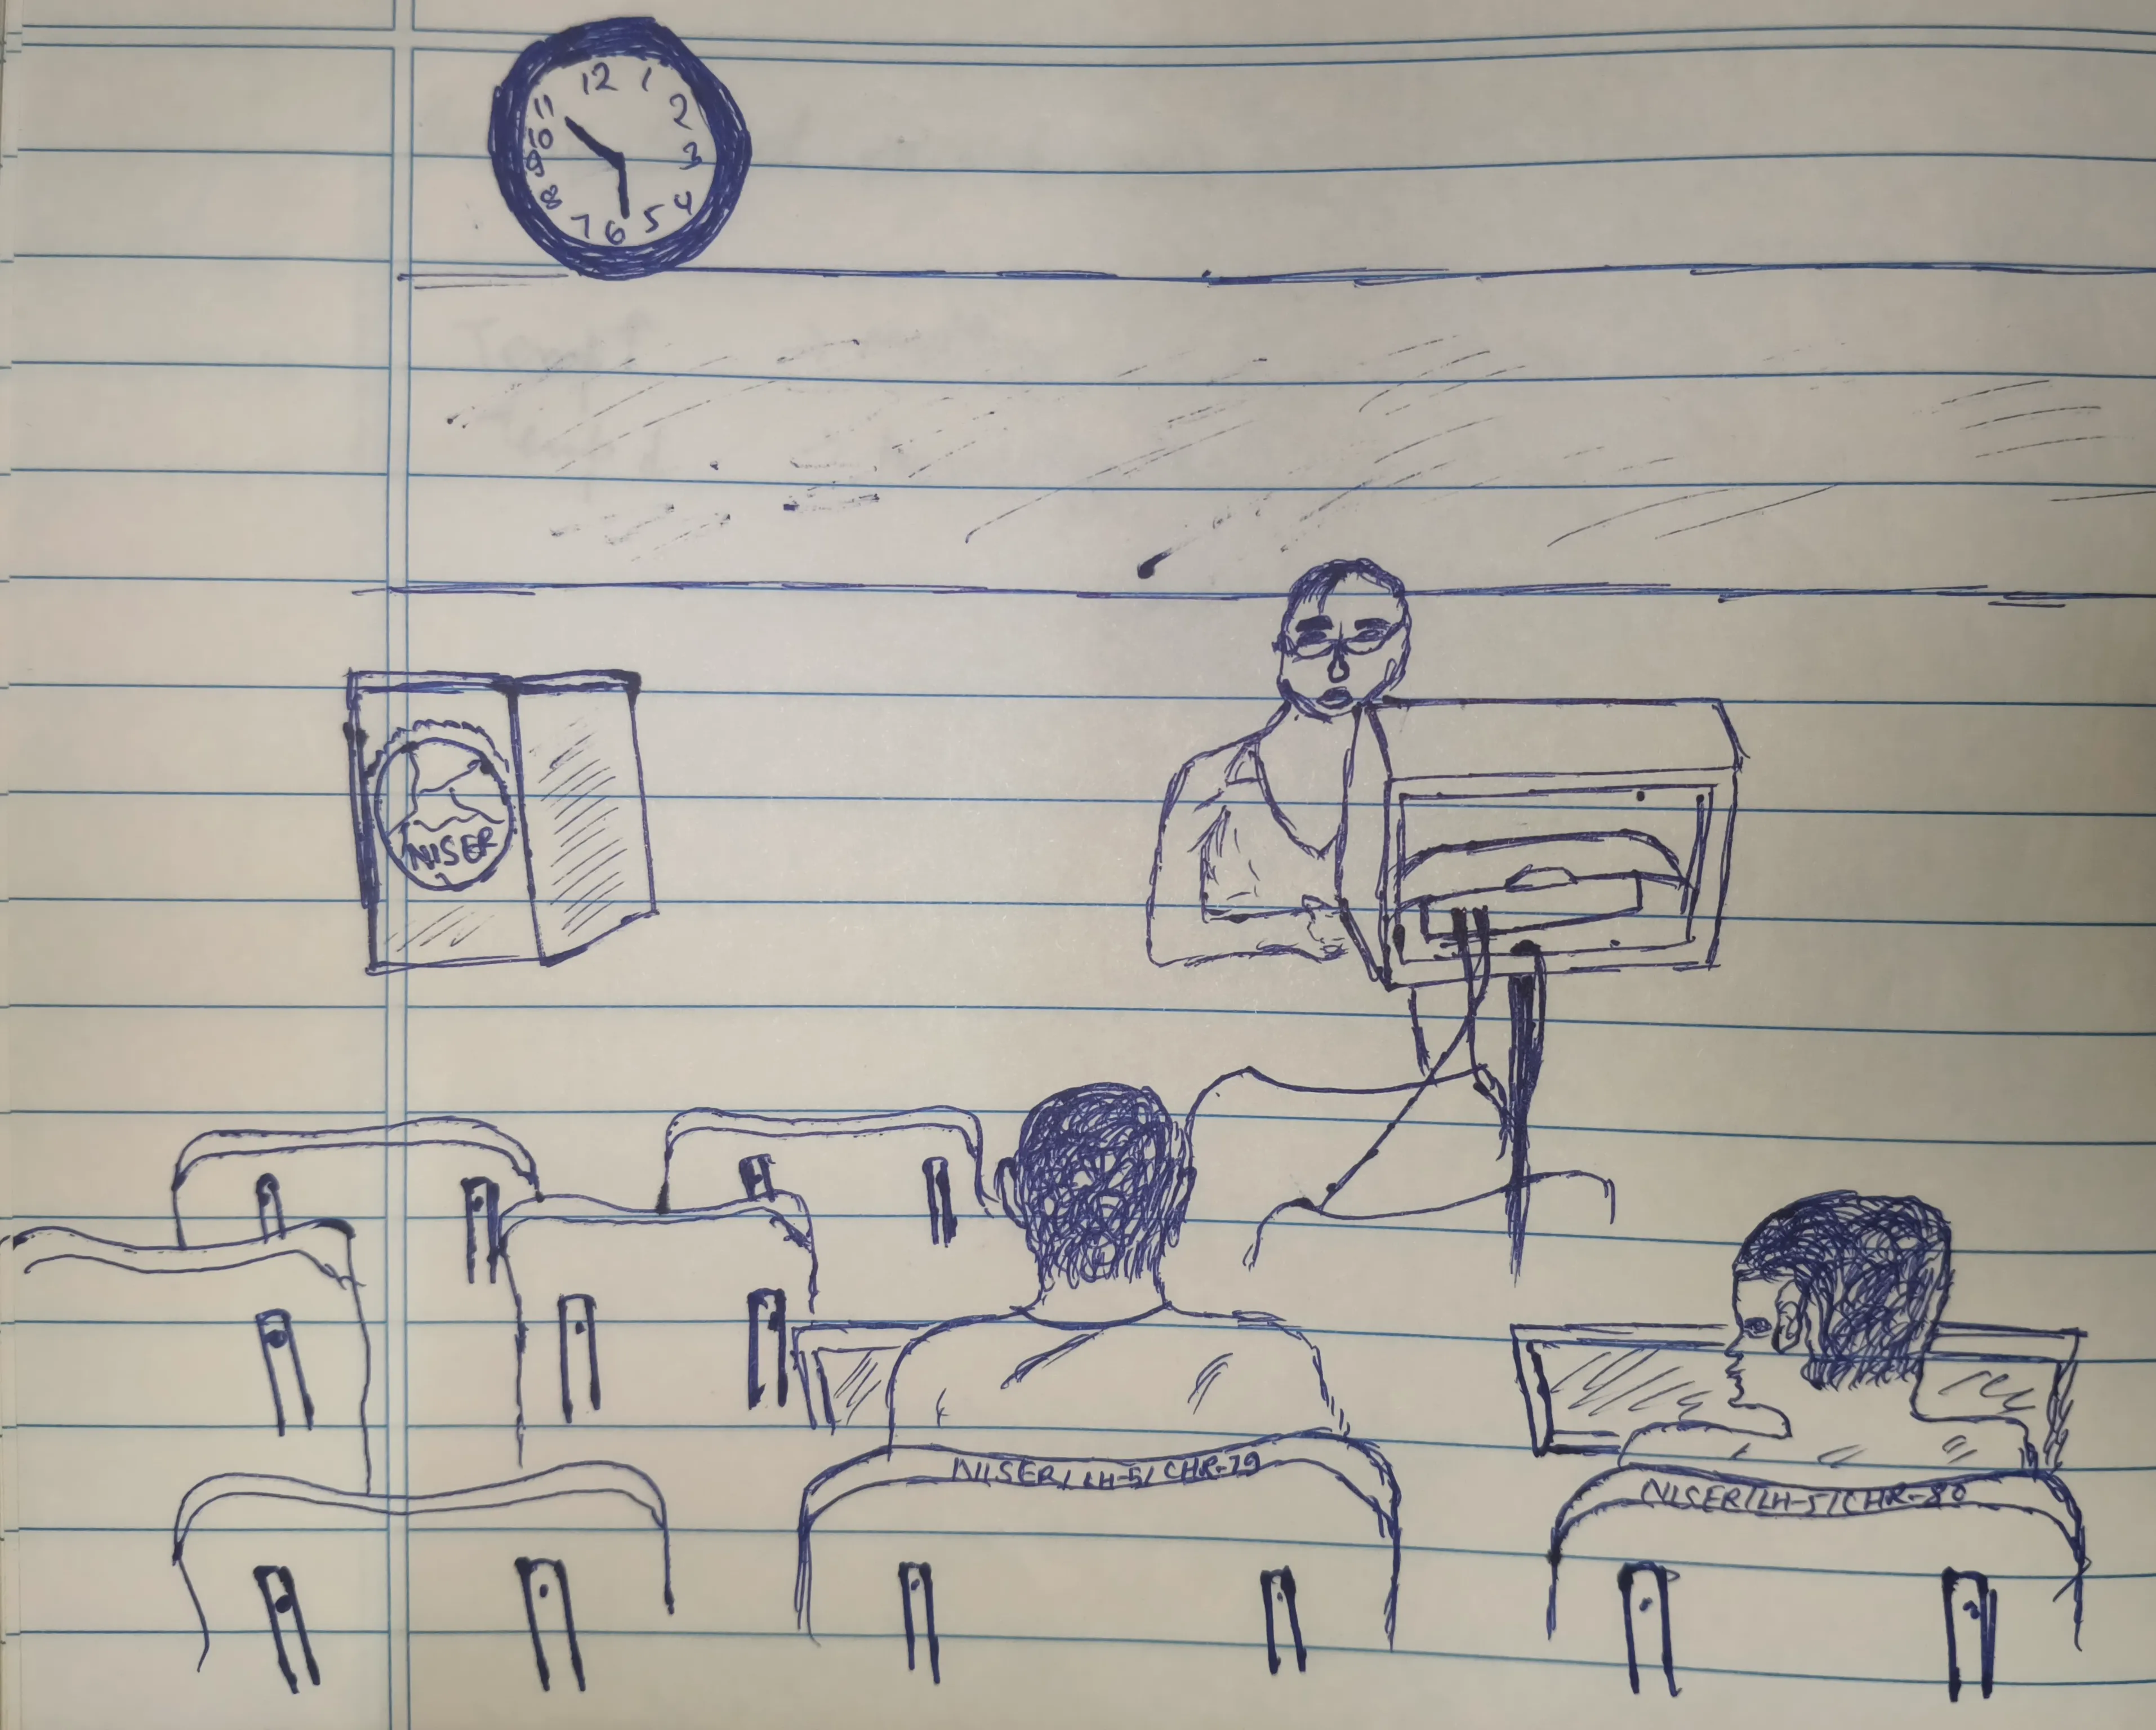 12
1
2
3
4
5
6
7
8
9
10
11
NISER
NISER/LH-5/CHR-79
NISER/LH-5/CHR-80